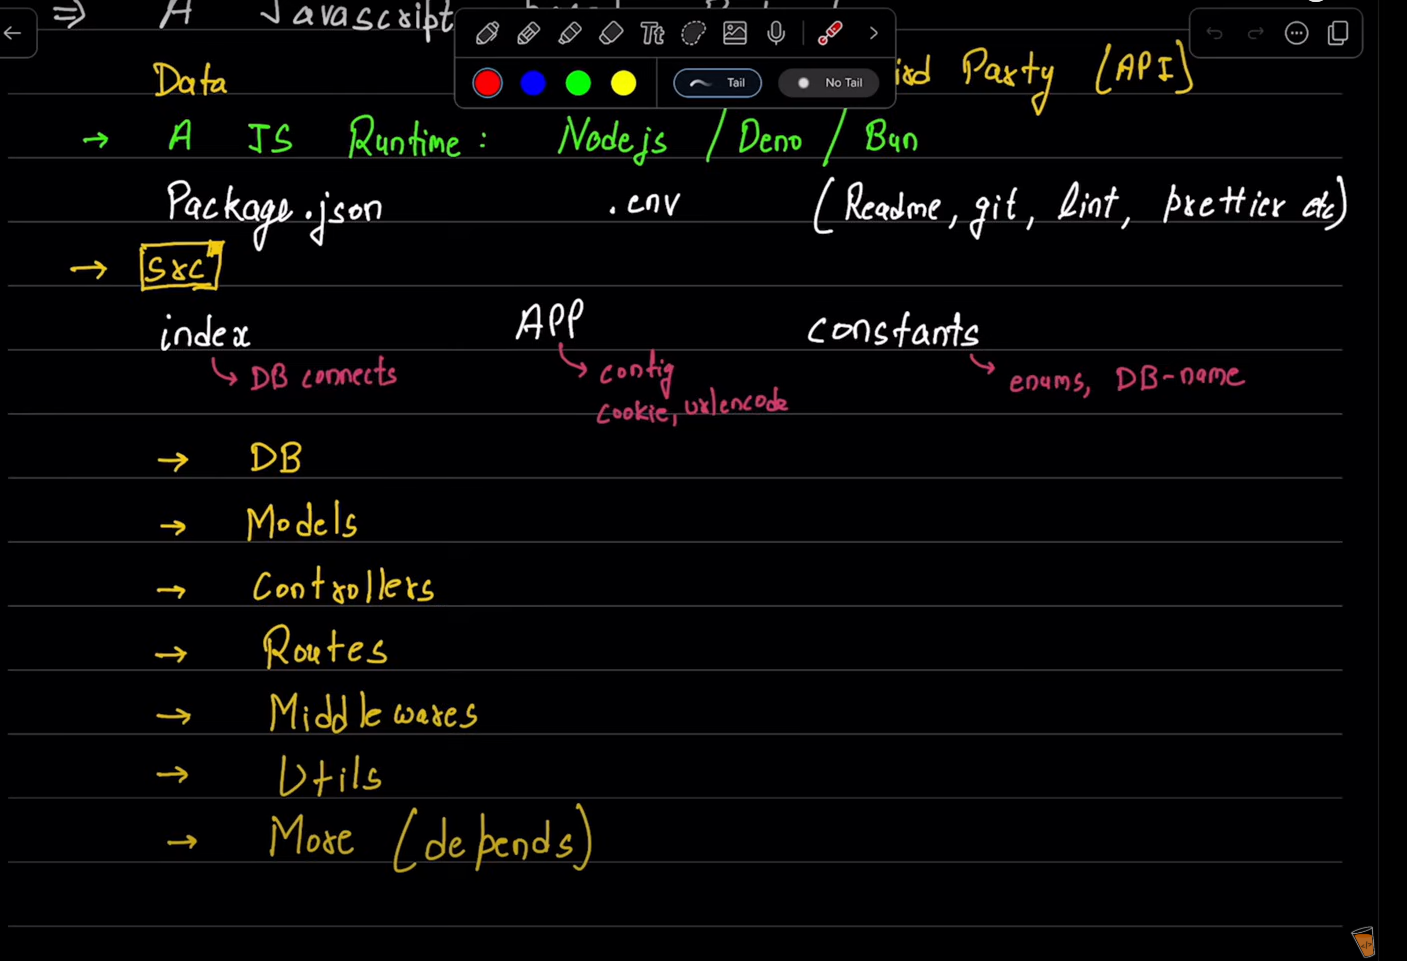 ⇒ A Javascript
Tt
Tail No Tail
Data Party (API)
→ A JS Runtime : Nodejs / Deno / Bun
Package.json .env (Readme, git, lint, prettier etc)
→ src
index APP constants
DB connects config enums, DB-name
cookie, urlencode
→ DB
→ Models
→ Controllers
→ Routes
→ Middlewares
→ Utils
→ More (depends)